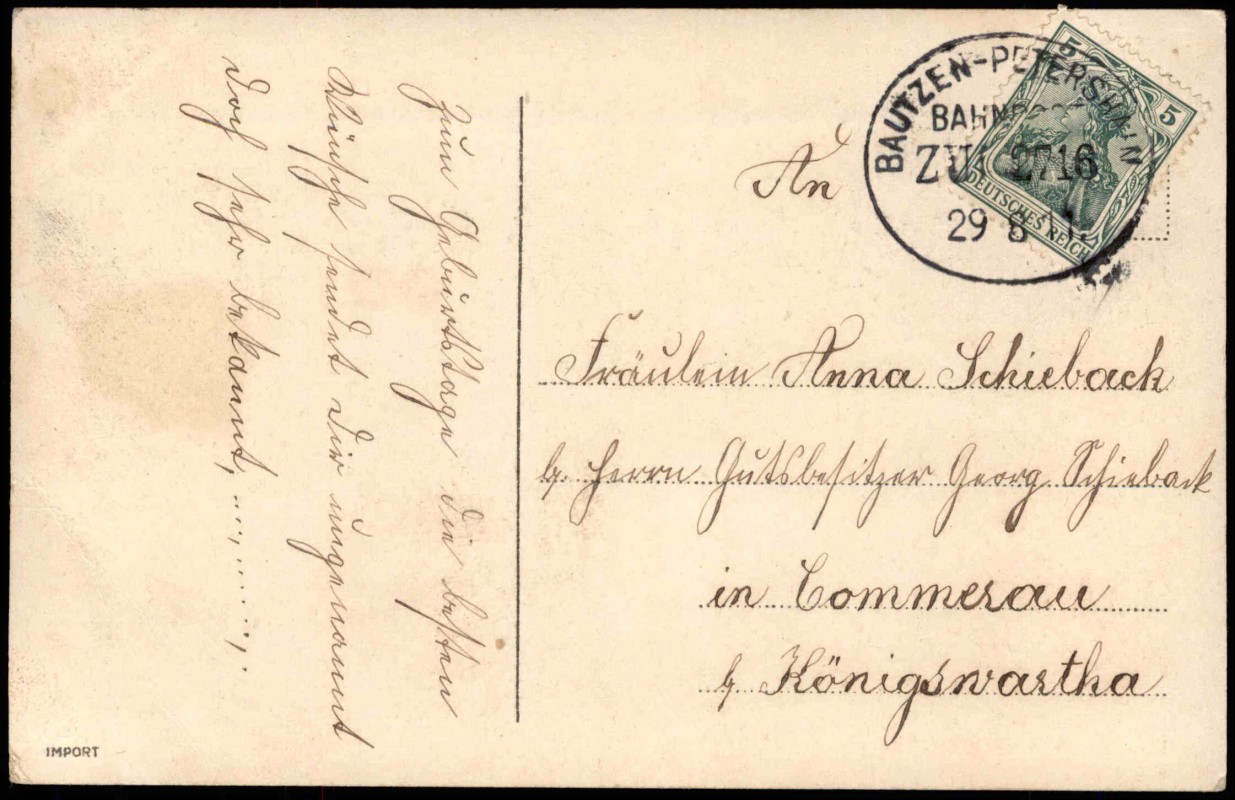 Zum Geburtstage die besten
Wünsche sendet dir ungenannt
doch sehr bekannt,
BAUTZEN-PETERSHAIN
BAHNPOST
ZUG 2716
29 8 11.
5 5
DEUTSCHES REICH
An
Fräulein Anna Schieback
b. Herrn Gutsbesitzer Georg Schieback
in Commerau
b. Königswartha
IMPORT